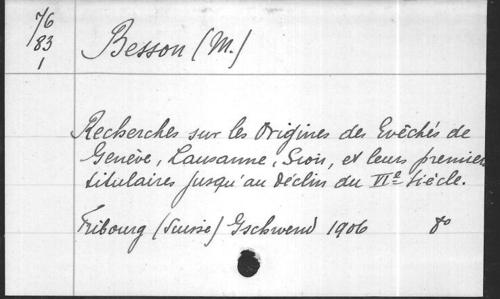 76
83
1
Besson (M.)
Recherches sur les Origines des Evêchés de
Genève, Lausanne, Sion, et leurs premiers
titulaires jusqu'au déclin du VIe Siècle.
Fribourg (Suisse) Gschwend 1906 8o